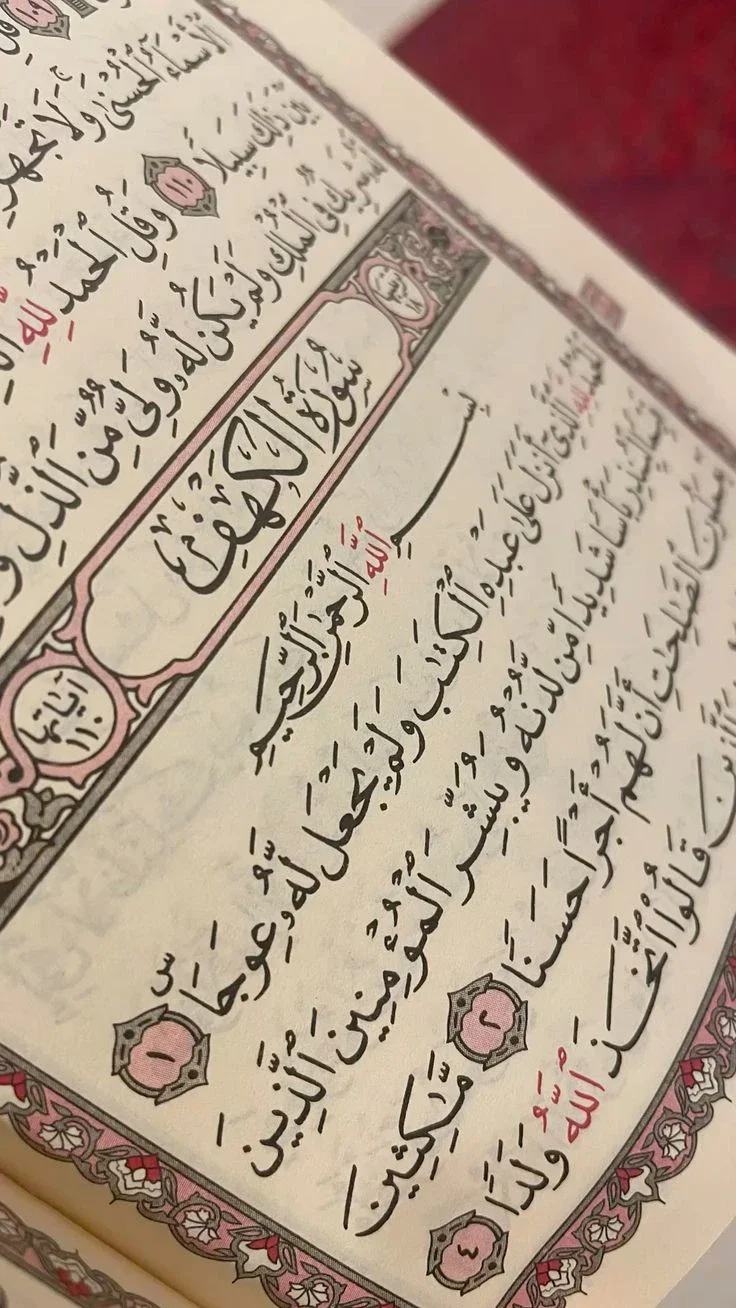 ١٠٩
ٱلْأَسْمَآءُ ٱلْحُسْنَىٰ وَلَا تَجْهَرْ
بَيْنَ ذَٰلِكَ سَبِيلًا ١١٠ وَقُلِ ٱلْحَمْدُ لِلَّهِ
شَرِيكٌ فِى ٱلْمُلْكِ وَلَمْ يَكُن لَّهُۥ وَلِىٌّ مِّنَ ٱلذُّلِّ
سُورَةُ الكَهْفِ
آيَاتُهَا ١١٠
بِسْمِ ٱللَّهِ ٱلرَّحْمَٰنِ ٱلرَّحِيمِ
ٱلْحَمْدُ لِلَّهِ ٱلَّذِىٓ أَنزَلَ عَلَىٰ عَبْدِهِ ٱلْكِتَٰبَ وَلَمْ يَجْعَل لَّهُۥ عِوَجَاۜ ١
قَيِّمًا لِّيُنذِرَ بَأْسًا شَدِيدًا مِّن لَّدُنْهُ وَيُبَشِّرَ ٱلْمُؤْمِنِينَ ٱلَّذِينَ
يَعْمَلُونَ ٱلصَّٰلِحَٰتِ أَنَّ لَهُمْ أَجْرًا حَسَنًا ٢ مَّٰكِثِينَ
ٱلَّذِينَ قَالُوا۟ ٱتَّخَذَ ٱللَّهُ وَلَدًا ٤